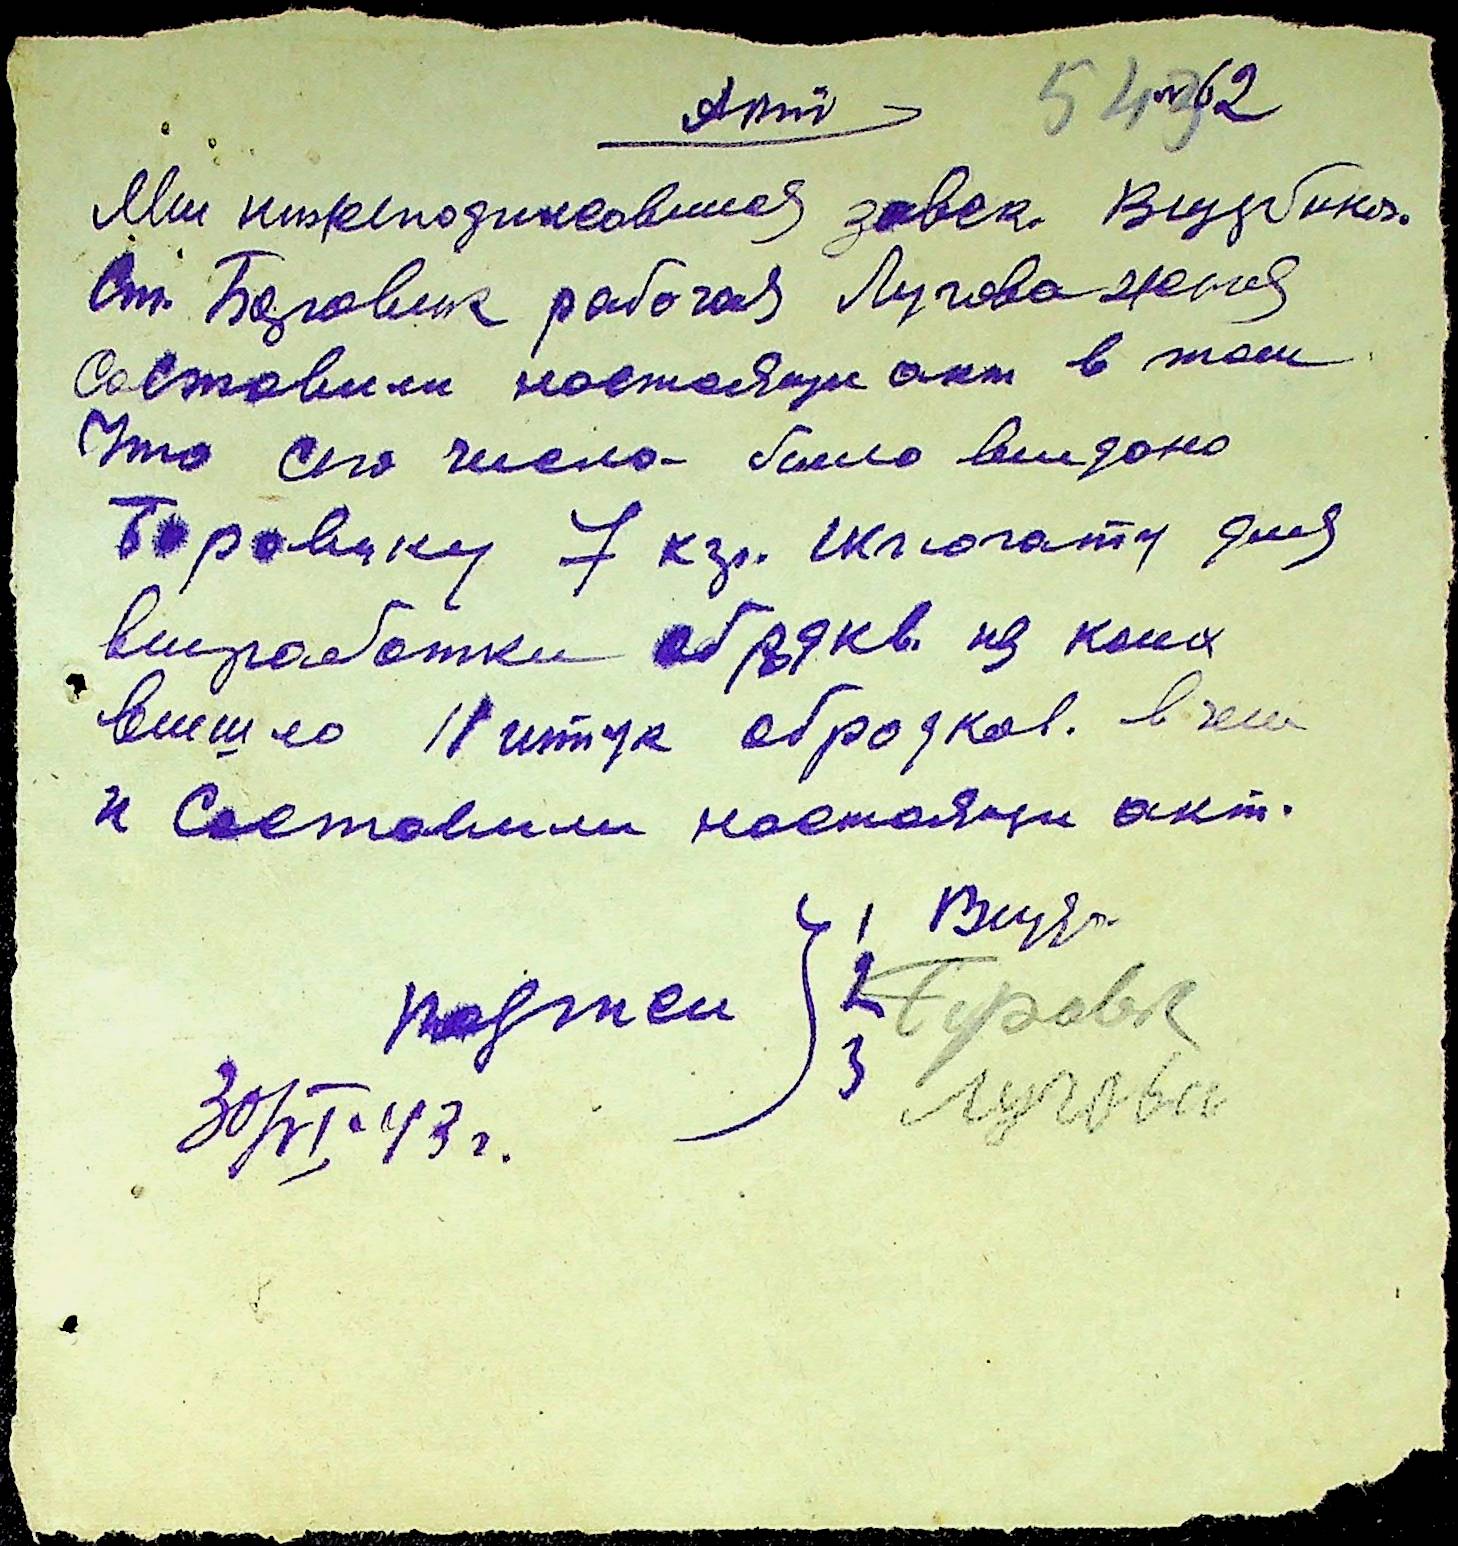 Акт
Ми нижеподписавшися завск.
Ст. рабочая Лугова Женя
Составили настоящи акт в том
Что сего числа было видано
Боровику 7 кгр. шкпогату для
виработки обрдкв. из коих
вишло 11 штук обродков. в чем
и Составили настоящи акт.
подписи
1
2 Боровик
3 Лугова
30/VI-43 г.